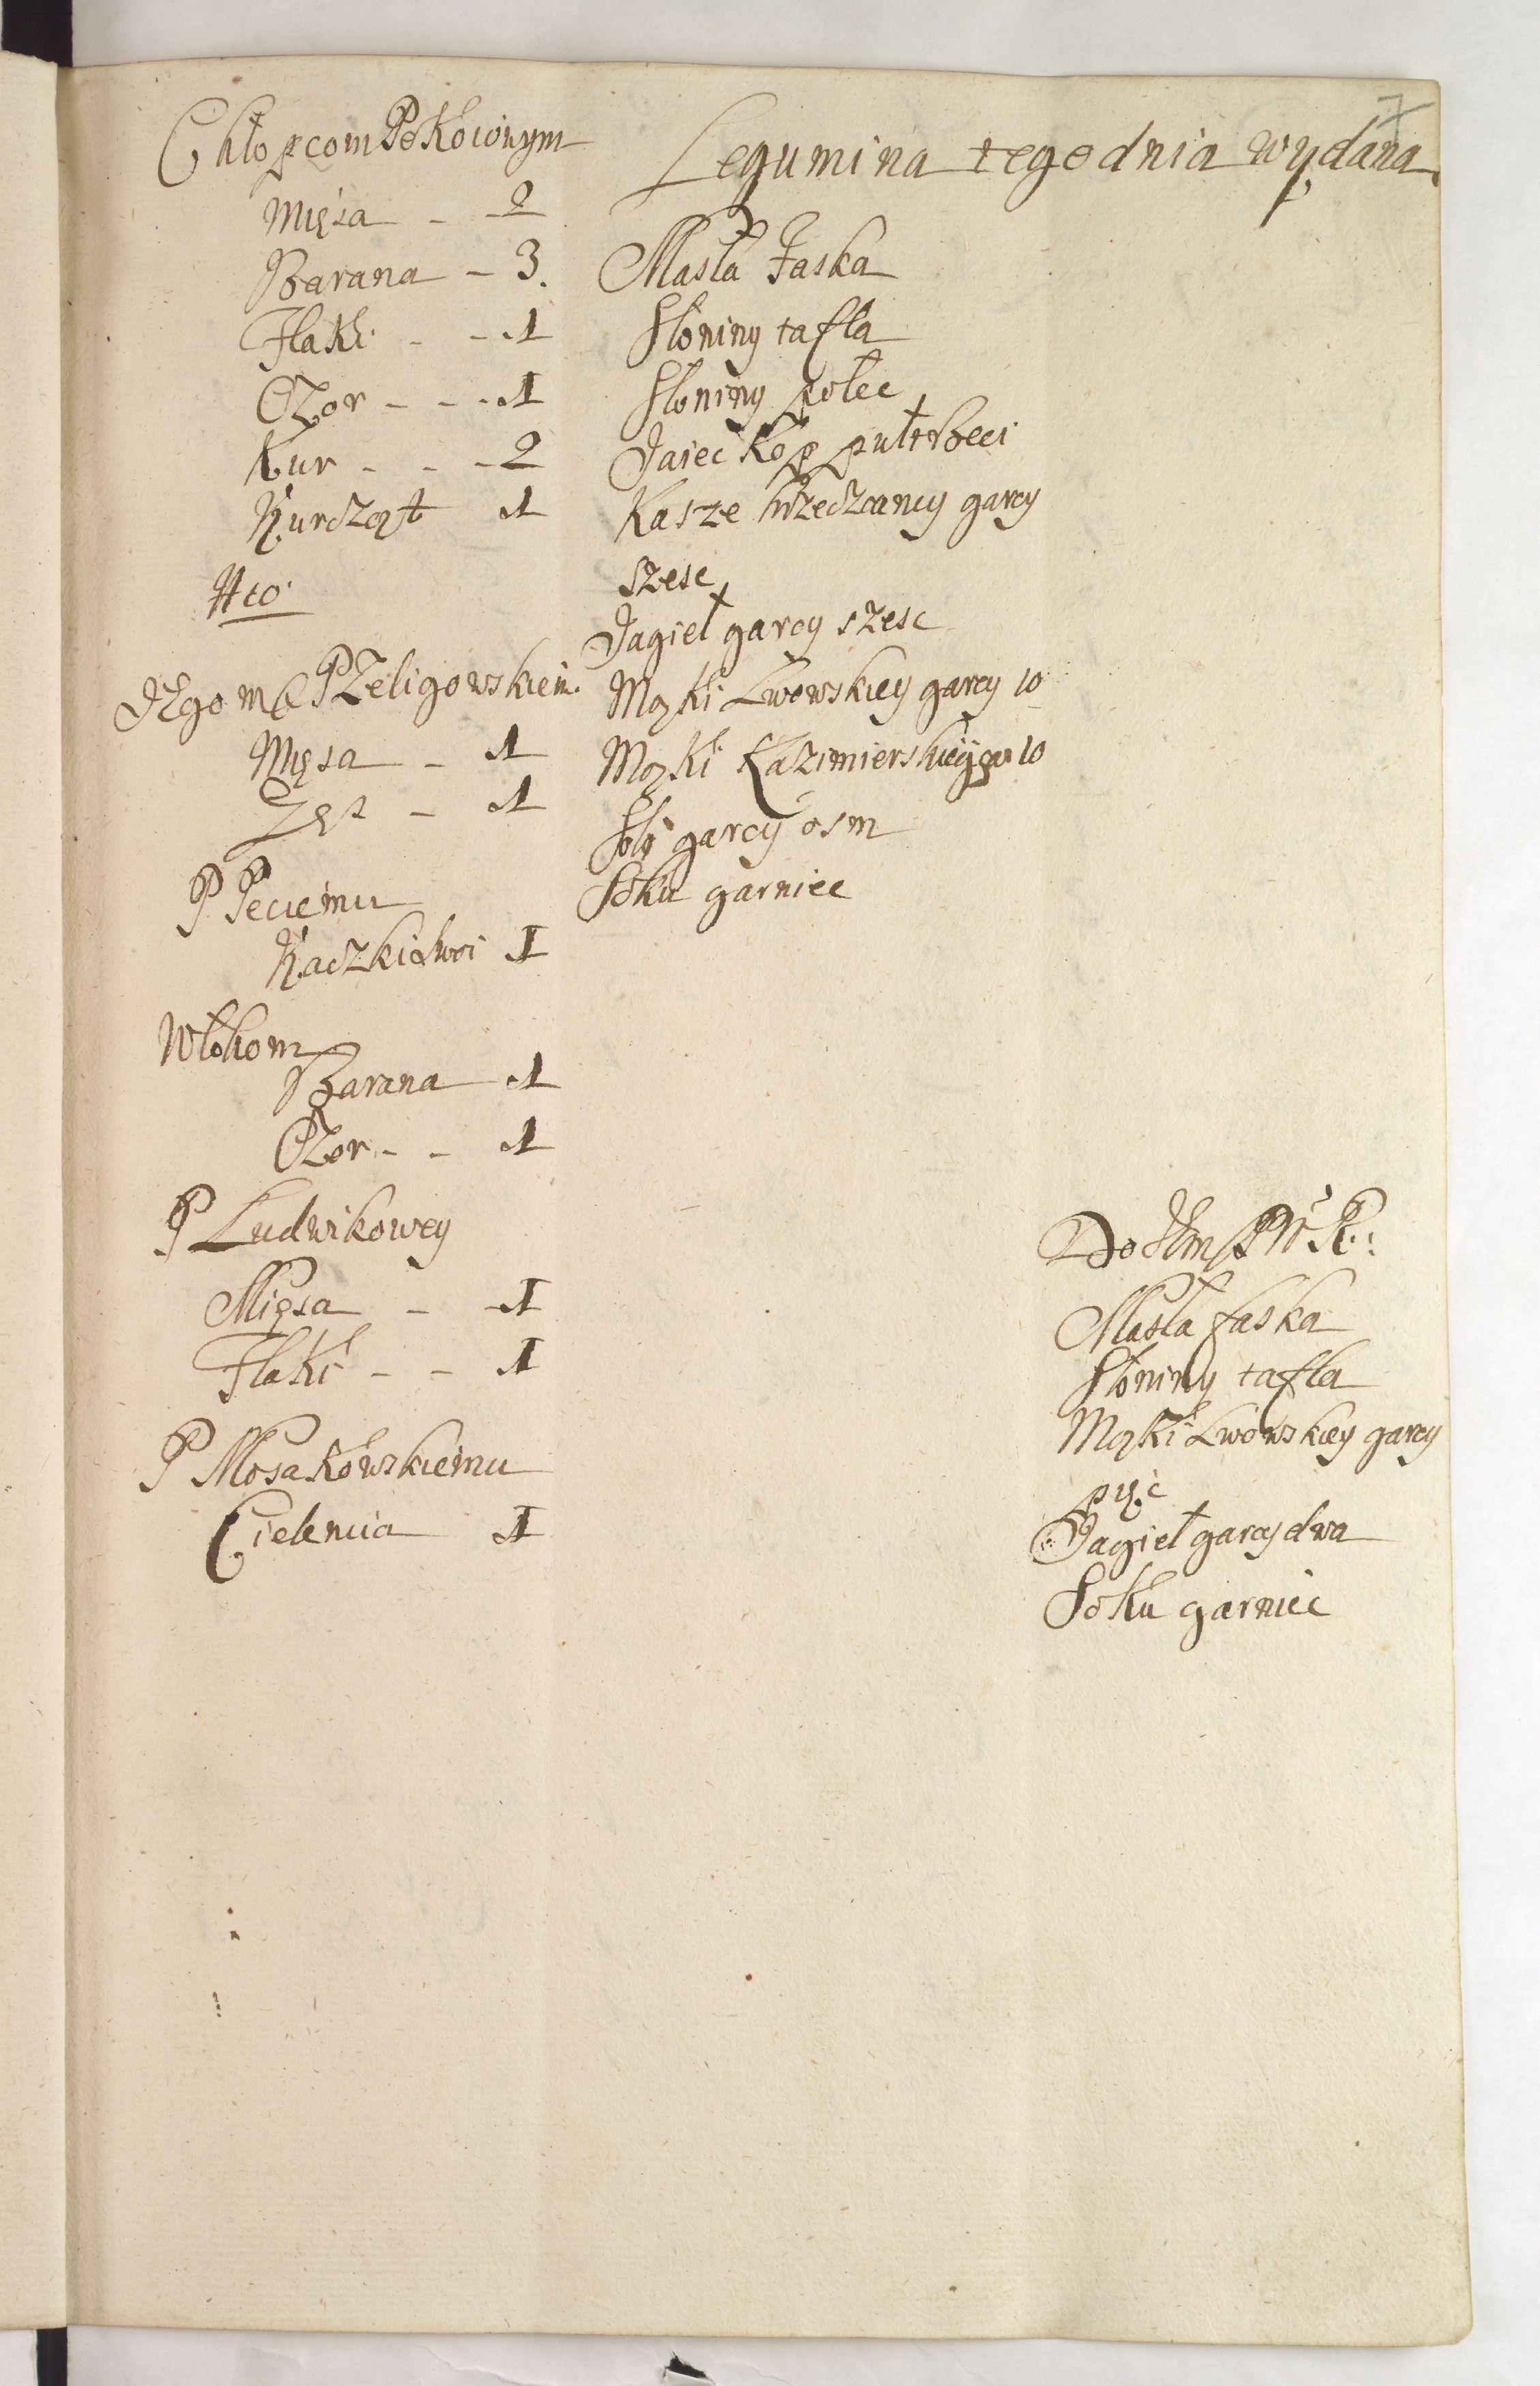 7
Chłopcom Pokoiowym
Mięsa - - 2
Barana - 3.
Flaki - - 1
Ozor - - - 1
Kur - - - 2
Kurcząt 1
Jego mć P Zeligowskiem.
Mięsa - 1
Gęś - 1
P Peciemu
Kaczki dwi 1
Włohom
Barana 1
Ozor - - 1
P Ludwikowey
Mięsa - - 1
Flaki - - 1
P Mosakowskiemu
Cielencia 1
Legumina tegodnia wydana
Masła Faska
Słoniny tafla
Słoniny połec
Jaiec kop pułtrzeci
Kasze hreczaney garcy
szesc
Jagieł garcy szesc
Mąki Lwowskiey garcy 10
Mąki Kazimierskiey gar 10
Soli garcy osm
Soku garniec
Do Jm P W K:
Masła faska
Słoniny tafla
Mąki Lwowskiey garcy
pięć
Jagieł garcy dwa
Soku garniec